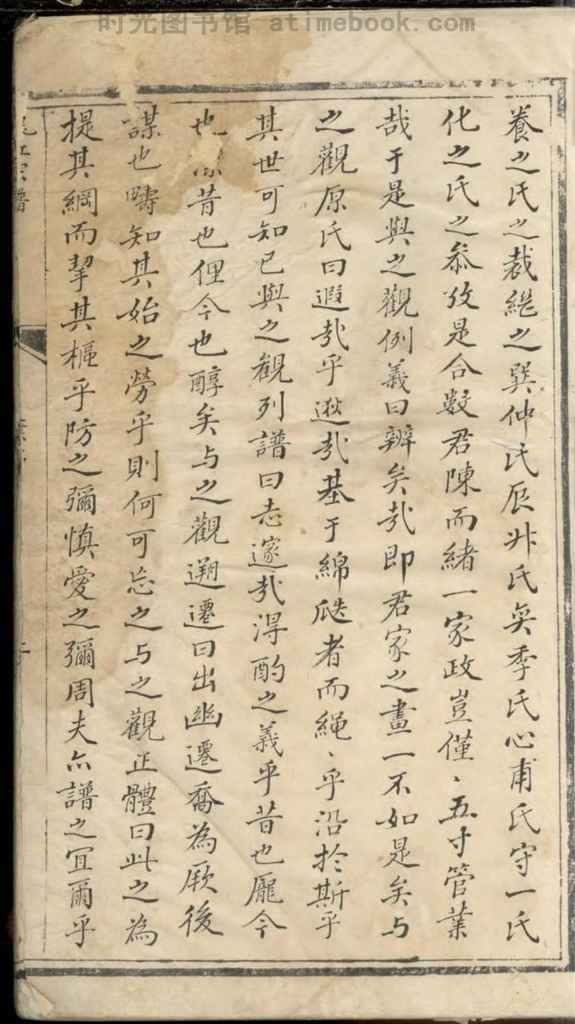 时光图书馆 atimebook.com
養之氏之裁綎之巽仲氏辰牀氏奐季氏心甫氏守一氏
化之氏之叅攷是合數君陳而緒一家政豈僅、五寸管業
哉于是與之觀例義曰辨矣㢤即君家之畫一不如是矣与
之觀原氏曰遐㢤乎逖㢤基于綿瓞者而繩、乎沿於斯乎
其世可知已與之観列譜曰志邃㢤淂酌之義乎昔也厖今
也 昔也俚今也醇矣与之觀遡遷曰出幽遷喬為厥後
謀也疇知其始之勞乎則何可忘之与之觀正體曰此之為
提其綱而挈其樞乎防之彌慎愛之彌周夫亦譜之冝爾乎
宗譜